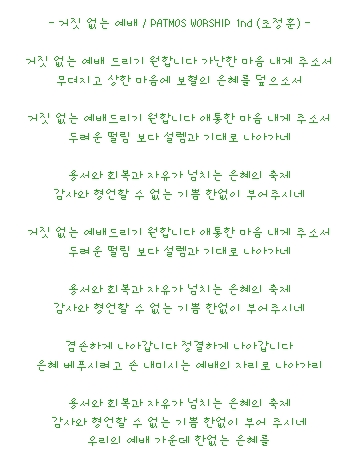 - 거짓 없는 예배 / PATMOS WORSHIP 1nd (조정훈) -
거짓 없는 예배 드리기 원합니다 가난한 마음 내게 주소서
무뎌지고 상한 마음에 보혈의 은혜를 덮으소서
거짓 없는 예배드리기 원합니다 애통한 마음 내게 주소서
두려운 떨림 보다 설렘과 기대로 나아가네
용서와 회복과 자유가 넘치는 은혜의 축제
감사와 형언할 수 없는 기쁨 한없이 부어주시네
거짓 없는 예배드리기 원합니다 애통한 마음 내게 주소서
두려운 떨림 보다 설렘과 기대로 나아가네
용서와 회복과 자유가 넘치는 은혜의 축제
감사와 형언할 수 없는 기쁨 한없이 부어주시네
겸손하게 나아갑니다 정결하게 나아갑니다
은혜 베푸시려고 손 내미시는 예배의 자리로 나아가리
용서와 회복과 자유가 넘치는 은혜의 축제
감사와 형언할 수 없는 기쁨 한없이 부어주시네
우리의 예배 가운데 한없는 은혜를